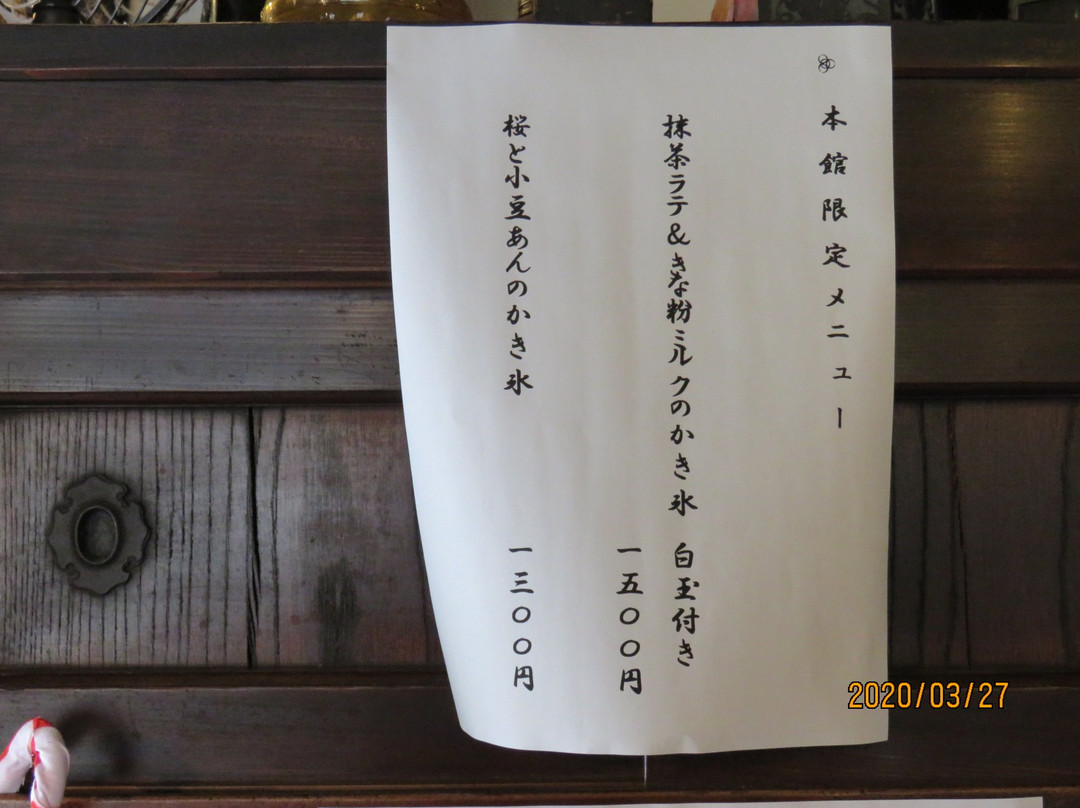 本館限定メニュー
抹茶ラテ&きな粉ミルクのかき氷 白玉付き
一五〇〇円
桜と小豆あんのかき氷 一三〇〇円
2020/03/27